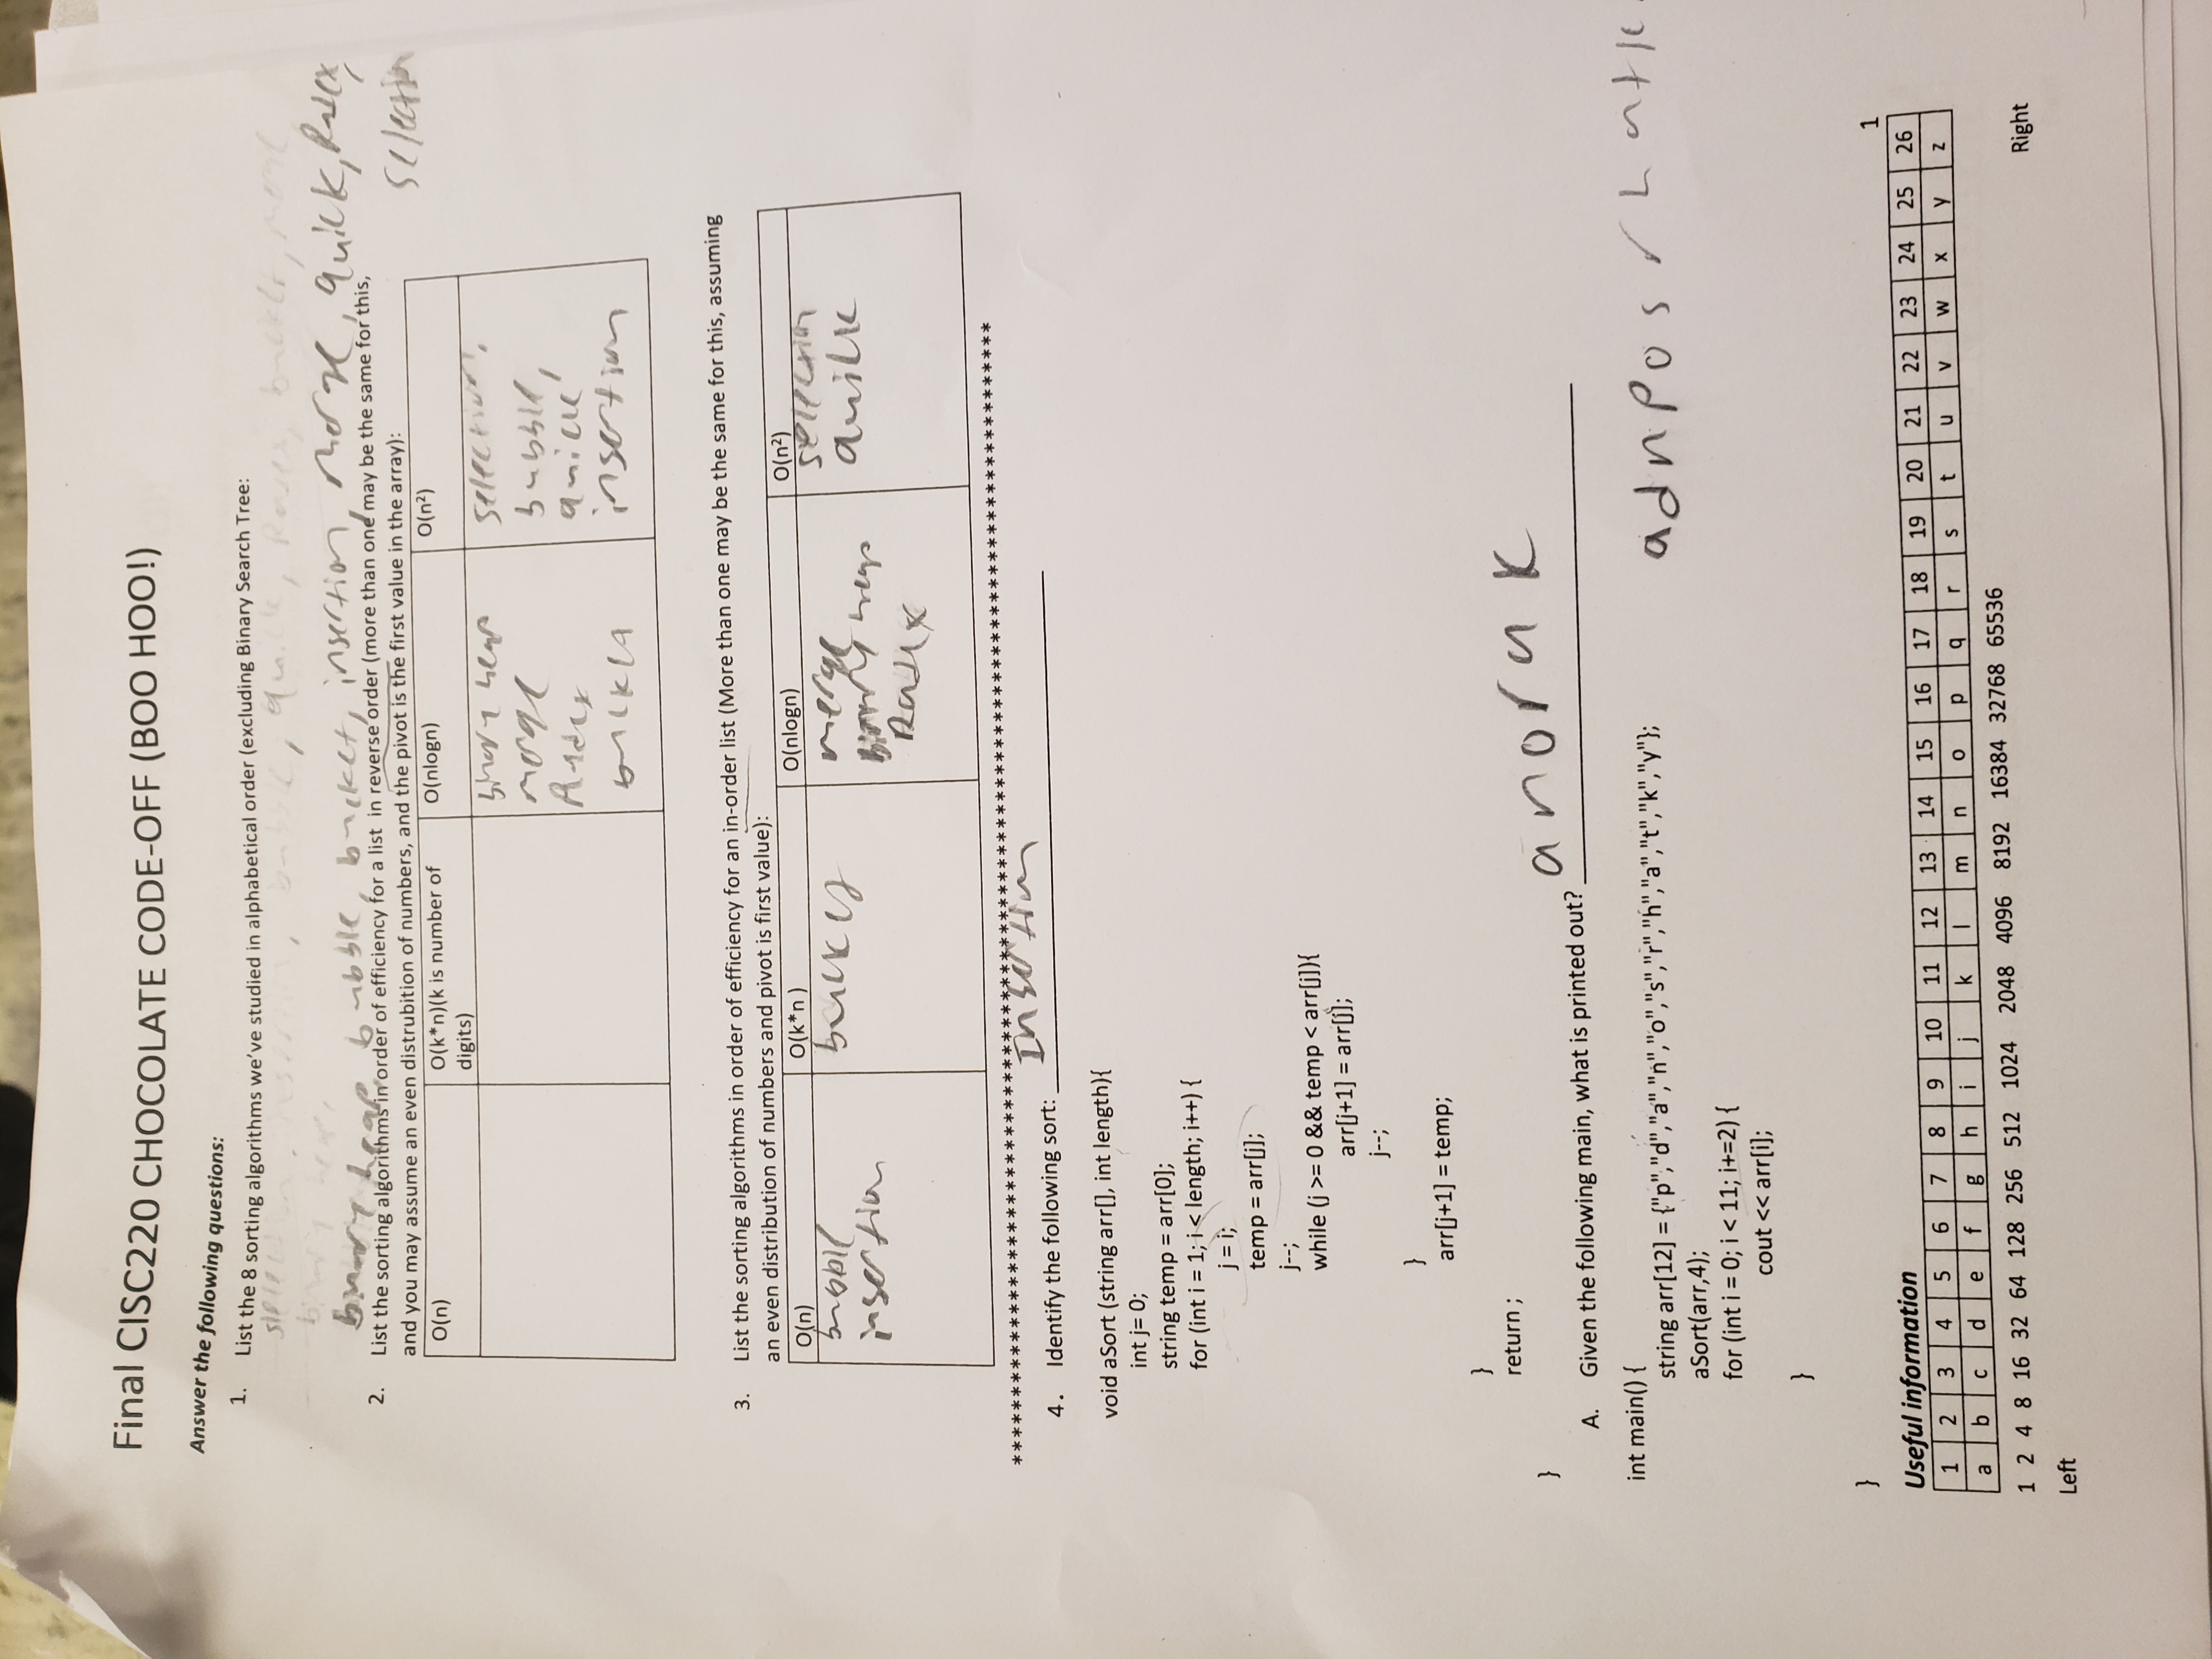 Final CISC220 CHOCOLATE CODE-OFF (BOO HOO!)
Answer the following questions:
1. List the 8 sorting algorithms we've studied in alphabetical order (excluding Binary Search Tree:
selection, insertion, bubble, quick, Radex, bucket, merge
binary heap,
binary heap, bubble, bucket, insertion, merge, quick, Radex,
selection
2. List the sorting algorithms in order of efficiency for a list in reverse order (more than one may be the same for this,
and you may assume an even distrubition of numbers, and the pivot is the first value in the array):
O(n) O(k*n)(k is number of digits) O(nlogn) O(n²)
binary heap selection,
merge bubble,
Radex quick
bucket insertion
3. List the sorting algorithms in order of efficiency for an in-order list (More than one may be the same for this, assuming
an even distribution of numbers and pivot is first value):
O(n) O(k*n ) O(nlogn) O(n²)
bubble bucket merge selection
insertion binary heap quick
Radex
********************************************************************************
4. Identify the following sort: Insertion
void aSort (string arr[], int length){
int j= 0;
string temp = arr[0];
for (int i = 1; i < length; i++) {
j = i;
temp = arr[j];
j--;
while (j >= 0 && temp < arr[j]){
arr[j+1] = arr[j];
j--;
}
arr[j+1] = temp;
}
return ;
}
A. Given the following main, what is printed out? anorak
int main() {
string arr[12] = {"p","d","a","n","o","s","r","h","a","t","k","y"};
adnposrhatk
aSort(arr,4);
for (int i = 0; i < 11; i+=2) {
cout << arr[i];
}
}
1
Useful information
1 2 3 4 5 6 7 8 9 10 11 12 13 14 15 16 17 18 19 20 21 22 23 24 25 26
a b c d e f g h i j k l m n o p q r s t u v w x y z
1 2 4 8 16 32 64 128 256 512 1024 2048 4096 8192 16384 32768 65536
Left Right